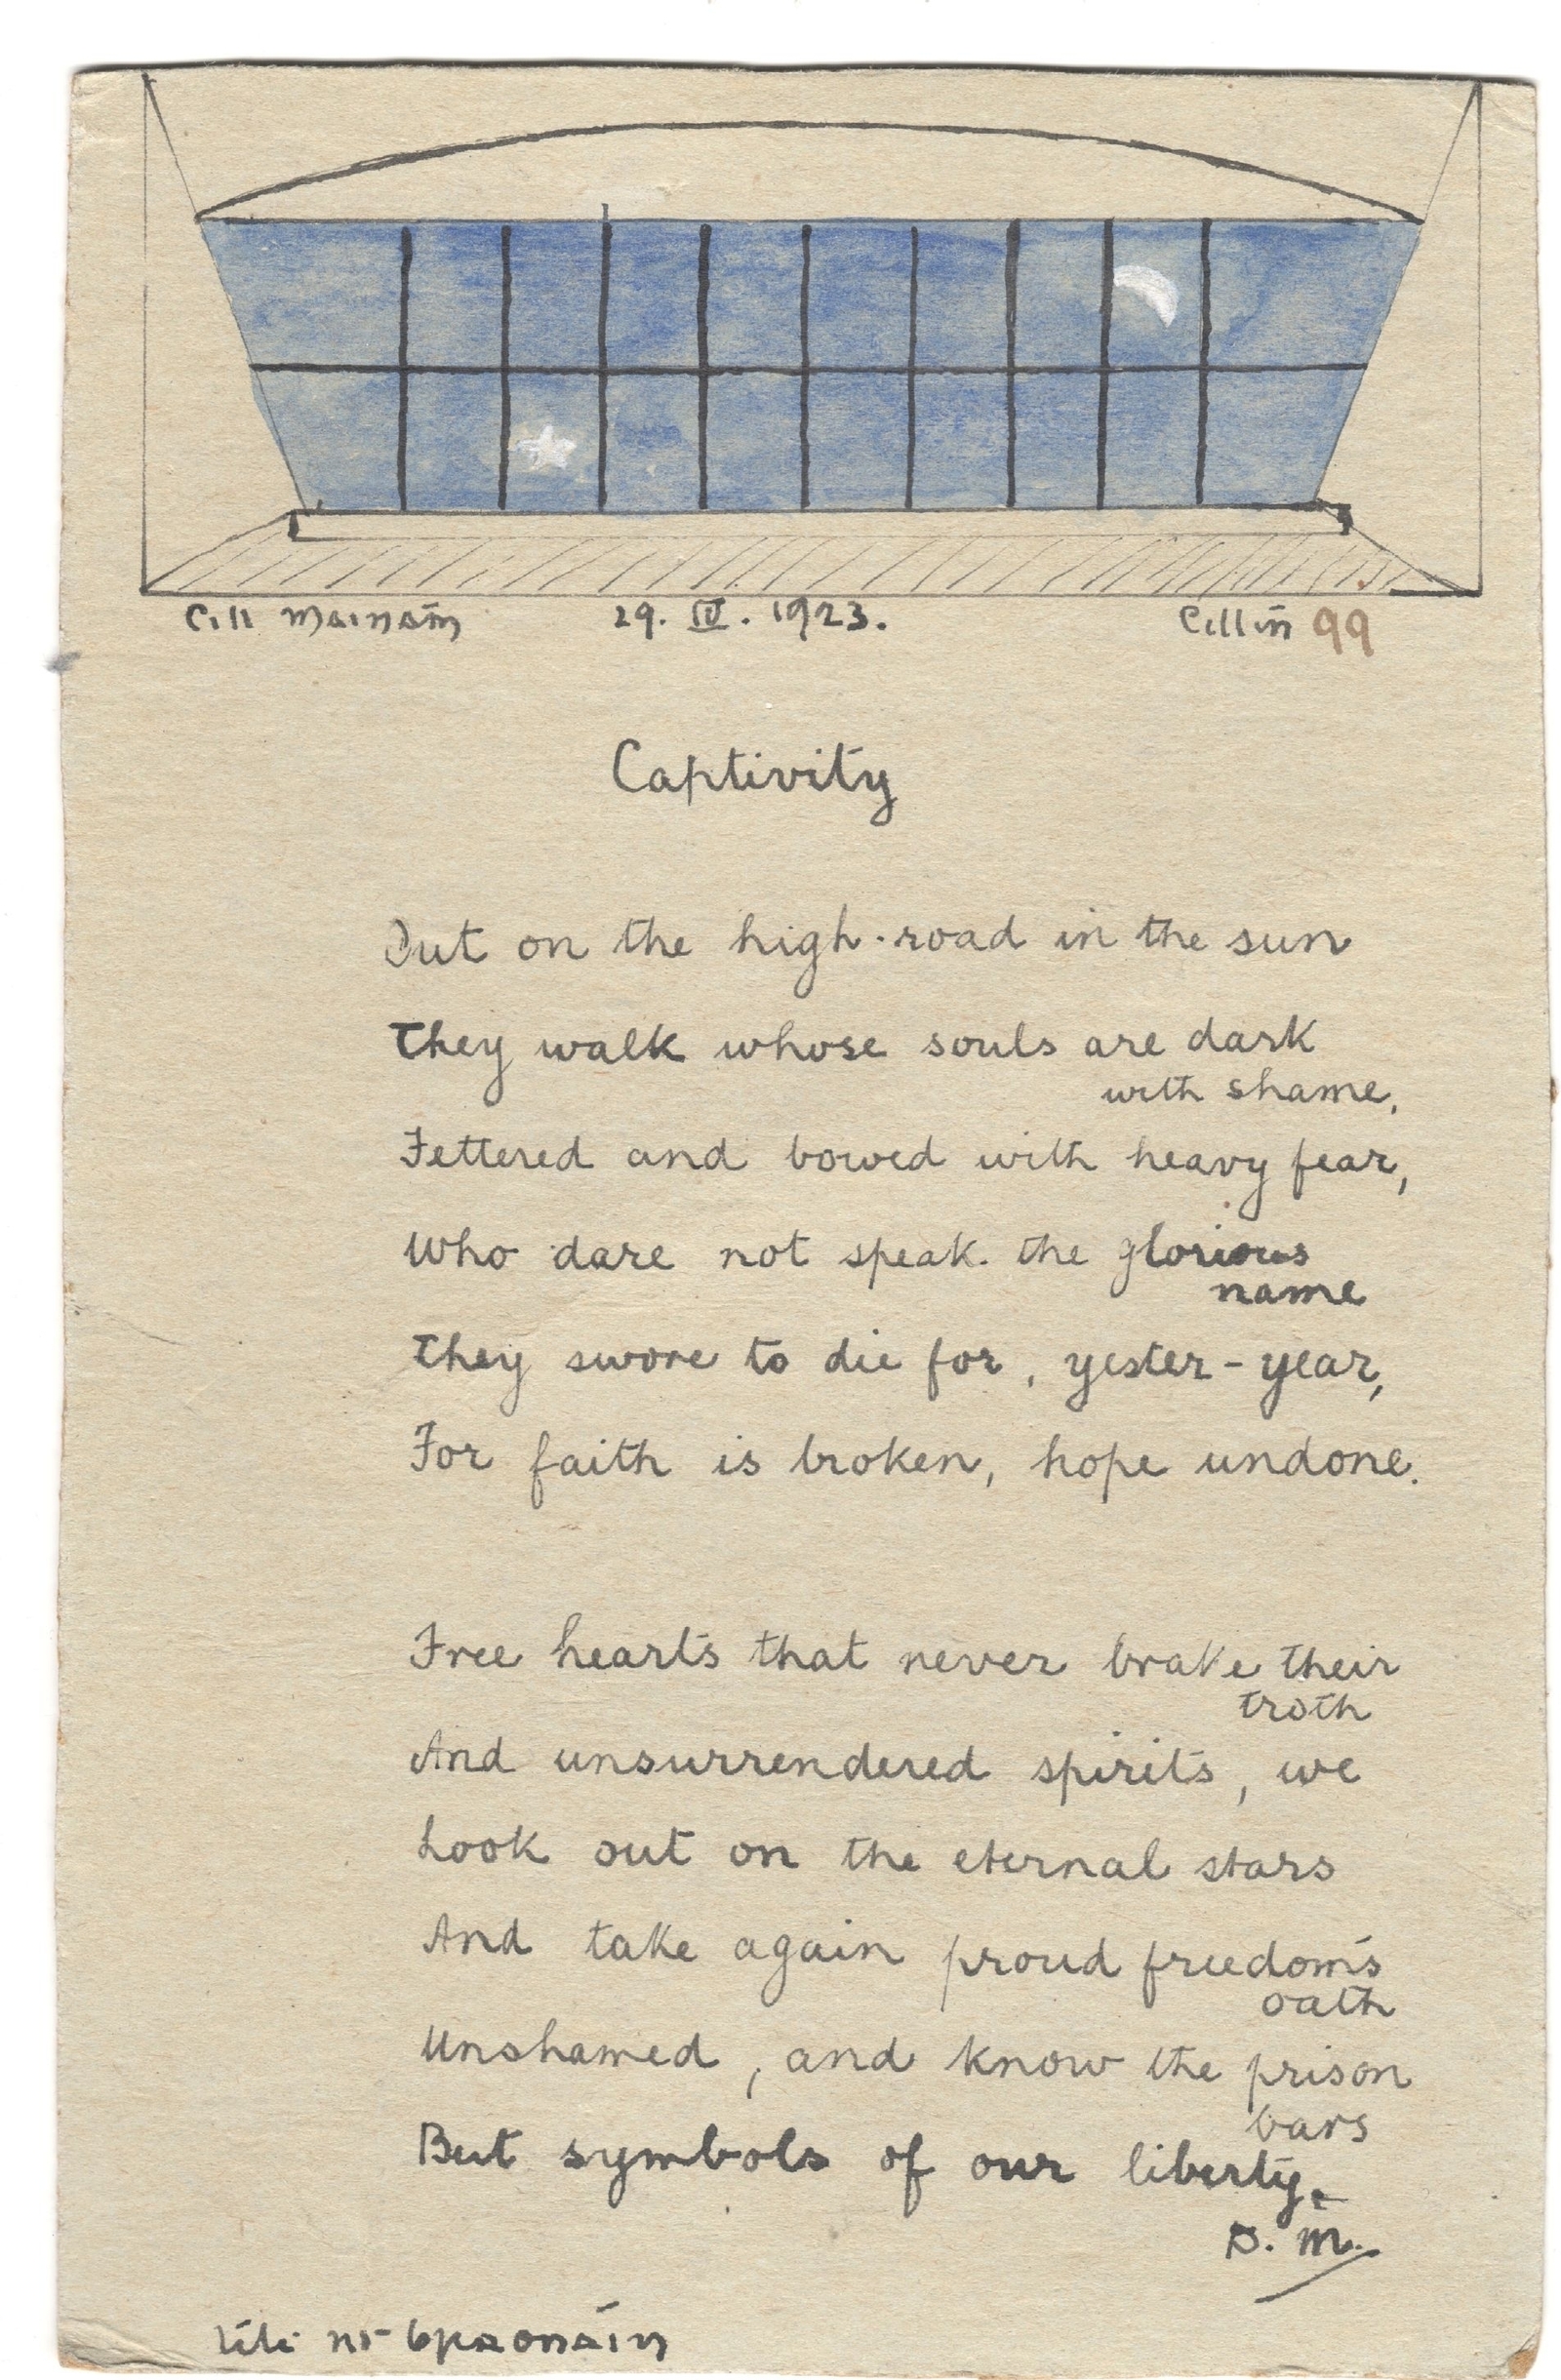 Cill Maináin 29. IV. 1923. Cillín 99
Captivity
Out on the high-road in the sun
They walk whose souls are dark
with shame,
Fettered and bowed with heavy fear,
Who dare not speak the glorious
name
They swore to die for, yester-year,
For faith is broken, hope undone.
Free hearts that never brake their
troth
And unsurrendered spirits, we
Look out on the eternal stars
And take again proud freedom's
oath
Unshamed, and know the prison
bars
But symbols of our liberty.
D. M.
Lilí ní Braonáin